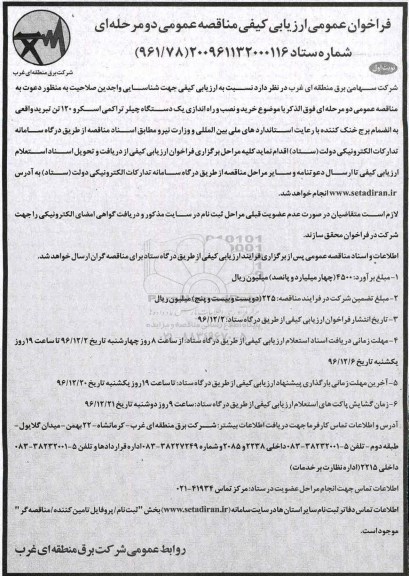 فراخوان عمومی ارزیابی کیفی مناقصه عمومی دو مرحله‌ای
شماره ستاد ۲۰۰۹۶۱۱۳۲۰۰۰۱۱۶ (۹۶۱/۷۸)
شرکت برق منطقه‌ای غرب
نوبت اول
شرکت سهامی برق منطقه ای غرب در نظر دارد نسبت به ارزیابی کیفی جهت شناسایی واجدین صلاحیت به منظور دعوت به
مناقصه عمومی دو مرحله ای فوق الذکر با موضوع خرید و نصب و راه اندازی یک دستگاه چیلر تراکمی اسکرو ۱۲۰ تن تبرید واقعی
به انضمام برج خنک کننده با رعایت استاندارد های ملی بین المللی و وزارت نیرو مطابق اسناد مناقصه از طریق درگاه سامانه
تدارکات الکترونیکی دولت (ستاد) اقدام نماید کلیه مراحل برگزاری فراخوان ارزیابی کیفی از دریافت و تحویل اسناد استعلام
ارزیابی کیفی تا ارسال دعوتنامه و سایر مراحل مناقصه از طریق درگاه سامانه تدارکات الکترونیکی دولت (ستاد) به آدرس
www.setadiran.ir انجام خواهد شد.
لازم است متقاضیان در صورت عدم عضویت قبلی مراحل ثبت نام در سایت مذکور و دریافت گواهی امضای الکترونیکی را جهت
شرکت در فراخوان محقق سازند.
اطلاعات و اسناد مناقصه عمومی پس از برگزاری فرایند ارزیابی کیفی از طریق درگاه ستاد برای مناقصه گران ارسال خواهد شد.
۱- مبلغ برآورد: ۴۵۰۰ (چهار میلیارد و پانصد) میلیون ریال
۲- مبلغ تضمین شرکت در فرایند مناقصه: ۲۲۵ (دویست و بیست و پنج) میلیون ریال
۳- تاریخ انتشار فراخوان ارزیابی کیفی از طریق درگاه ستاد: ۹۶/۱۲/۲
۴- مهلت زمانی دریافت اسناد استعلام ارزیابی کیفی از طریق درگاه ستاد: از ساعت ۸ روز چهارشنبه تاریخ ۹۶/۱۲/۲ تا ساعت ۱۹ روز
یکشنبه تاریخ ۹۶/۱۲/۶
۵- آخرین مهلت زمانی بارگذاری پیشنهاد ارزیابی کیفی از طریق درگاه ستاد: تا ساعت ۱۹ روز یکشنبه تاریخ ۹۶/۱۲/۲۰
۶- زمان گشایش پاکت های استعلام ارزیابی کیفی از طریق درگاه ستاد: ساعت ۹ روز دوشنبه تاریخ ۹۶/۱۲/۲۱
آدرس و اطلاعات تماس کارفرما جهت دریافت اطلاعات بیشتر: شرکت برق منطقه ای غرب - کرمانشاه - ۲۲ بهمن - میدان گلایول -
طبقه دوم - تلفن ۵-۰۸۳-۳۸۲۳۲۰۰۱ داخلی ۲۲۳۸ و ۲۰۸۵ و شماره ۰۸۳-۳۸۲۲۷۲۴۹ اداره قراردادها و تلفن ۵-۰۸۳-۳۸۲۳۲۰۰۱
داخلی ۲۲۱۵ (اداره نظارت بر خدمات)
اطلاعات تماس جهت انجام مراحل عضویت در ستاد: مرکز تماس ۴۱۹۳۴-۰۲۱
اطلاعات تماس دفاتر ثبت نام سایر استان ها در سایت سامانه (www.setadiran.ir) بخش "ثبت نام / پروفایل تامین کننده / مناقصه گر"
موجود است.
روابط عمومی شرکت برق منطقه‌ای غرب